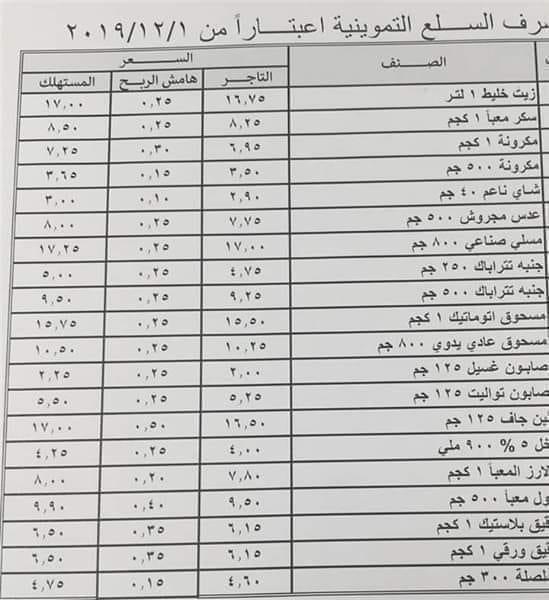 صرف السلع التموينية اعتباراً من ٢٠١٩/١٢/١
الصنف السعر
التاجر هامش الربح المستهلك
زيت خليط ١ لتر ١٦,٧٥ ٠,٢٥ ١٧,٠٠
سكر معبأ ١ كجم ٨,٢٥ ٠,٢٥ ٨,٥٠
مكرونة ١ كجم ٦,٩٥ ٠,٣٠ ٧,٢٥
مكرونة ٥٠٠ جم ٣,٥٠ ٠,١٥ ٣,٦٥
شاي ناعم ٤٠ جم ٢,٩٠ ٠,١٠ ٣,٠٠
عدس مجروش ٥٠٠ جم ٧,٧٥ ٠,٢٥ ٨,٠٠
مسلي صناعي ٨٠٠ جم ١٧,٠٠ ٠,٢٥ ١٧,٢٥
جنبه تتراباك ٢٥٠ جم ٤,٧٥ ٠,٢٥ ٥,٠٠
جنبه تتراباك ٥٠٠ جم ٩,٢٥ ٠,٢٥ ٩,٥٠
مسحوق اتوماتيك ١ كجم ١٥,٥٠ ٠,٢٥ ١٥,٧٥
مسحوق عادي يدوي ٨٠٠ جم ١٠,٢٥ ٠,٢٥ ١٠,٥٠
صابون غسيل ١٢٥ جم ٢,٠٠ ٠,٢٥ ٢,٢٥
صابون تواليت ١٢٥ جم ٥,٢٥ ٠,٢٥ ٥,٥٠
جاف ١٢٥ جم ١٦,٥٠ ٠,٥٠ ١٧,٠٠
خل ٥ % ٩٠٠ ملي ٤,٠٠ ٠,٢٥ ٤,٢٥
الارز المعبأ ١ كجم ٧,٨٠ ٠,٢٠ ٨,٠٠
معبأ ٥٠٠ جم ٩,٥٠ ٠,٤٠ ٩,٩٠
بلاستيك ١ كجم ٦,١٥ ٠,٣٥ ٦,٥٠
ورقي ١ كجم ٦,١٥ ٠,٣٥ ٦,٥٠
٣٠٠ جم ٤,٦٠ ٠,١٥ ٤,٧٥